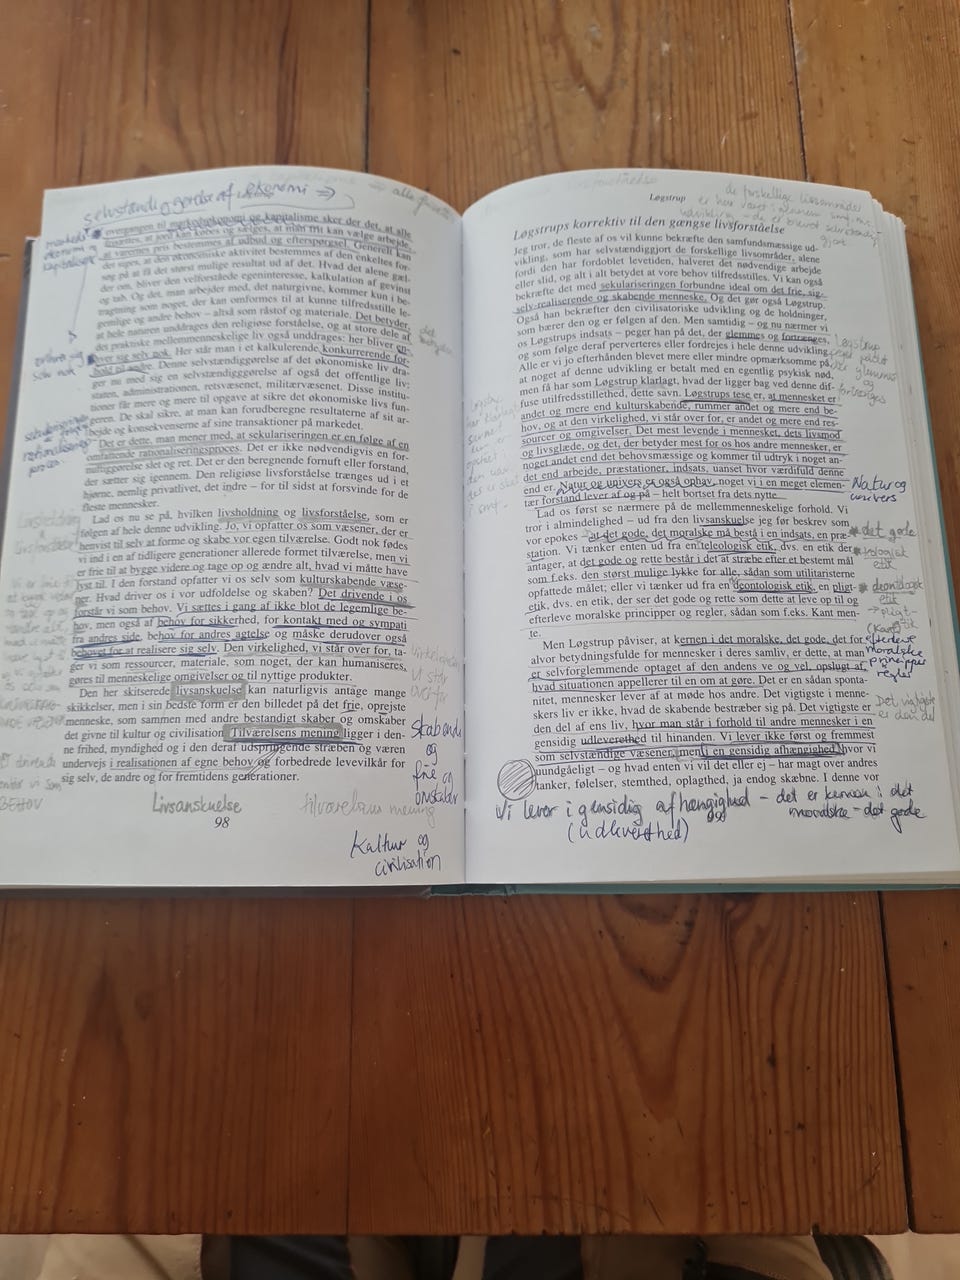 selvstændiggørelse af økonomi ⇒
overgangen til markedsøkonomi og kapitalisme sker der det, at alle
forsættes, at jord kan købes og sælges, at man frit kan vælge arbejde,
at varernes pris bestemmes af udbud og efterspørgsel. Generelt kan
det siges, at den økonomiske aktivitet bestemmes af den enkeltes for-
søg på at få det størst mulige resultat ud af det. Hvad det alene gæl-
der om, bliver den velforståede egeninteresse, kalkulation af gevinst
og tab. Og det, man arbejder med, det naturgivne, kommer kun i be-
tragtning som noget, der kan omformes til at kunne tilfredsstille le-
gemlige og andre behov – altså som råstof og materiale. Det betyder,
at hele naturen unddrages den religiøse forståelse, og at store dele af
det praktiske mellemmenneskelige liv også unddrages: her bliver en-
hver sig selv nok. Her står man i et kalkulerende konkurrerende for-
hold til andre. Denne selvstændiggørelse af det økonomiske liv dra-
ger nu med sig en selvstændiggørelse af også det offentlige liv:
staten, administrationen, retsvæsenet, militærvæsenet. Disse institu-
tioner får mere og mere til opgave at sikre det økonomiske livs fun-
geren. De skal sikre, at man kan forudberegne resultaterne af sit ar-
bejde og konsekvenserne af sine transaktioner på markedet.
Det er dette, man mener med, at sekulariseringen er en følge af en
omfattende rationaliseringsproces. Det er ikke nødvendigvis en for-
nuftiggørelse slet og ret. Det er den beregnende fornuft eller forstand,
der sætter sig igennem. Den religiøse livsforståelse trænges ud i et
hjørne, nemlig privatlivet, det indre – for til sidst at forsvinde for de
fleste mennesker.
Lad os nu se på, hvilken livsholdning og livsforståelse, som er
følgen af hele denne udvikling. Jo, vi opfatter os som væsener, der er
henvist til selv at forme og skabe vor egen tilværelse. Godt nok fødes
vi ind i en af tidligere generationer allerede formet tilværelse, men vi
er frie til at bygge videre og tage op og ændre alt, hvad vi måtte have
lyst til. I den forstand opfatter vi os selv som kulturskabende væse-
ner. Hvad driver os i vor udfoldelse og skaben? Det drivende i os
forstår vi som behov. Vi sættes i gang af ikke blot de legemlige be-
hov, men også af behov for sikkerhed, for kontakt med og sympati
fra andres side, behov for andres agtelse og måske derudover også
behovet for at realisere sig selv. Den virkelighed, vi står over for, ta-
ger vi som ressourcer, materiale, som noget, der kan humaniseres,
gøres til menneskelige omgivelser og til nyttige produkter.
Den her skitserede livsanskuelse kan naturligvis antage mange
skikkelser, men i sin bedste form er den billedet på det frie, oprejste
menneske, som sammen med andre bestandigt skaber og omskaber
det givne til kultur og civilisation. Tilværelsens mening ligger i den-
ne frihed, myndighed og i den deraf udspringende stræben og væren
undervejs i realisationen af egne behov og forbedrede levevilkår for
sig selv, de andre og for fremtidens generationer.
skabende
og
frie og
omskaber
Livsanskuelse
tilværelsens mening
98
Kultur og
civilisation
Løgstrup
Løgstrups korrektiv til den gængse livsforståelse
Jeg tror, de fleste af os vil kunne bekræfte den samfundsmæssige ud-
vikling, som har selvstændiggjort de forskellige livsområder, alene
fordi den har fordoblet levetiden, halveret det nødvendige arbejde
eller slid, og alt i alt betydet at vore behov tilfredsstilles. Vi kan også
bekræfte det med sekulariseringen forbundne ideal om det frie, sig-
selv-realiserende og skabende menneske. Og det gør også Løgstrup.
Også han bekræfter den civilisatoriske udvikling og de holdninger,
som bærer den og er følgen af den. Men samtidig – og nu nærmer vi
os Løgstrups indsats – peger han på det, der glemmes og fortrænges,
og som følge deraf perverteres eller fordrejes i hele denne udvikling.
Alle er vi jo efterhånden blevet mere eller mindre opmærksomme på,
at noget af denne udvikling er betalt med en egentlig psykisk nød,
men få har som Løgstrup klarlagt, hvad der ligger bag ved denne dif-
fuse utilfredsstillethed, dette savn. Løgstrups tese er, at mennesket er
andet og mere end kulturskabende, rummer andet og mere end be-
hov, og at den virkelighed, vi står over for, er andet og mere end res-
sourcer og omgivelser. Det mest levende i mennesket, dets livsmod
og livsglæde, og det, der betyder mest for os hos andre mennesker, er
noget andet end det behovsmæssige og kommer til udtryk i noget an-
det end arbejde, præstationer, indsats, uanset hvor værdifuld denne
end er. Natur og univers er også ophav, noget vi i en meget elemen-
tær forstand lever af og på – helt bortset fra dets nytte.
Natur og
univers
Lad os først se nærmere på de mellemmenneskelige forhold. Vi
tror i almindelighed – ud fra den livsanskuelse jeg før beskrev som
vor epokes – at det gode, det moralske må bestå i en indsats, en præ-
station. Vi tænker enten ud fra en teleologisk etik, dvs. en etik der
antager, at det gode og rette består i det at stræbe efter et bestemt mål
som f.eks. den størst mulige lykke for alle, sådan som utilitaristerne
opfattede målet; eller vi tænker ud fra en deontologisk etik, en pligt-
etik, dvs. en etik, der ser det gode og rette som dette at leve op til og
efterleve moralske principper og regler, sådan som f.eks. Kant men-
te.
det gode
(Kant)
efterleve
moralske
principper
regler
Men Løgstrup påviser, at kernen i det moralske, det gode, det for
alvor betydningsfulde for mennesker i deres samliv, er dette, at man
er selvforglemmende optaget af den andens ve og vel, opslugt af,
hvad situationen appellerer til en om at gøre. Det er en sådan sponta-
nitet, mennesker lever af at møde hos andre. Det vigtigste i menne-
skers liv er ikke, hvad de skabende bestræber sig på. Det vigtigste er
den del af ens liv, hvor man står i forhold til andre mennesker i en
gensidig udleverethed til hinanden. Vi lever ikke først og fremmest
som selvstændige væsener, men i en gensidig afhængighed, hvor vi
uundgåeligt – og hvad enten vi vil det eller ej – har magt over andres
tanker, følelser, stemthed, oplagthed, ja endog skæbne. I denne vor
Det vigtigste
er den del
Vi lever i gensidig afhængighed – det er kernen i det
moralske – det gode
(udleverethed)
99